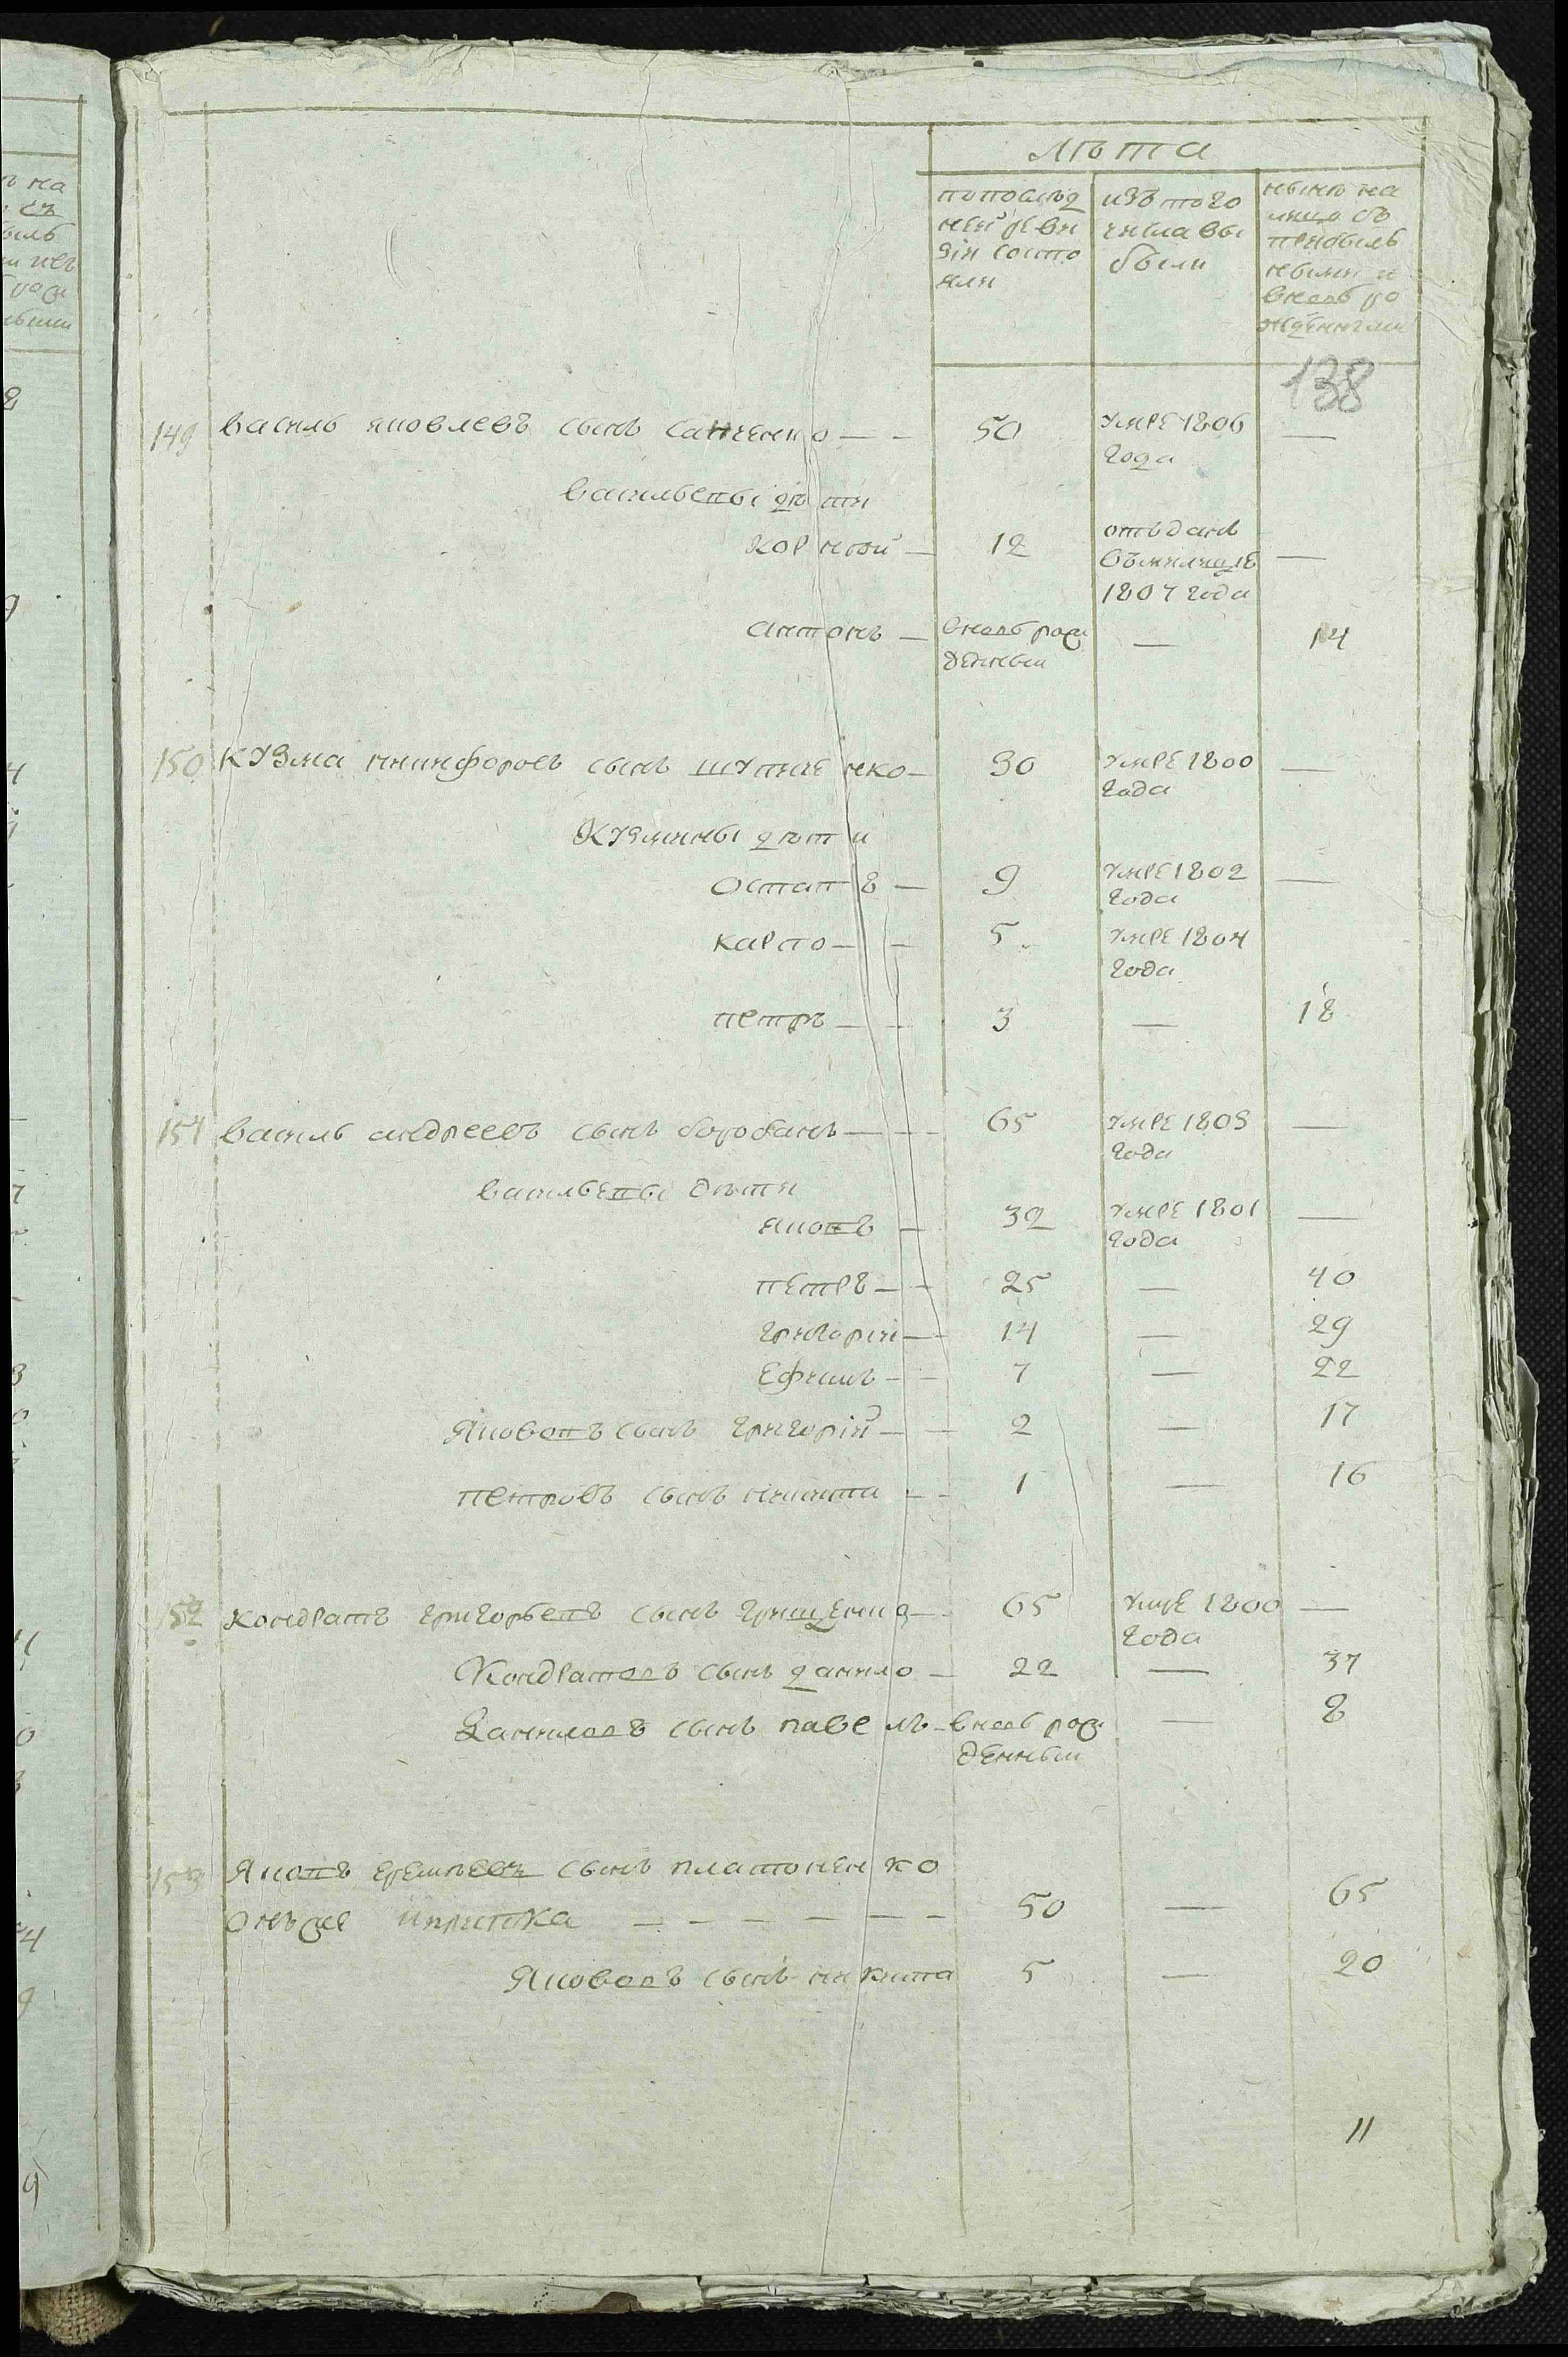 лѣта
попослѣд
ней реви
зіи состо
яли
изъ того
числа вы
были
нынѣ на
лицо съ
прибыль
ными и
вновь ро
жденными
138
149 василь яковлевъ сынъ санченко — — 50 умре 1806 —
года
васильевы дѣти
корнѣй — 12 отъданъ —
въмилицые
1807 года
антонъ — вновь рож — 14
денный
150 кузма никифоровъ сынъ шупиченко — 30 умре 1800 —
года
кузмины дѣти
остапъ — 9 умре 1802 —
года
карпо — — 5 умре 1804
года
петръ — — 3 — 18
151 василь андреевъ сынъ боробанъ — — — 65 умре 1803 —
года
васильевы дѣти
яковъ — 32 умре 1801 —
года
петръ — — 25 — 40
григорій — — 14 — 29
ефимъ — — 7 — 22
яковвъ сынъ григорій — — 2 — 17
петровъ сынъ никита — — 1 — 16
152 кондратъ григорьевъ сынъ грищенко — 65 умре 1800 —
года
кондратовъ сынъ данило — 22 — 37
даниловъ сынъ павелъ — вновь рож — 8
денный
153 яковъ еремѣевъ сынъ платоненко
онъже — — — — — — 50 — 65
якововъ сынъ никита 5 — 20
11